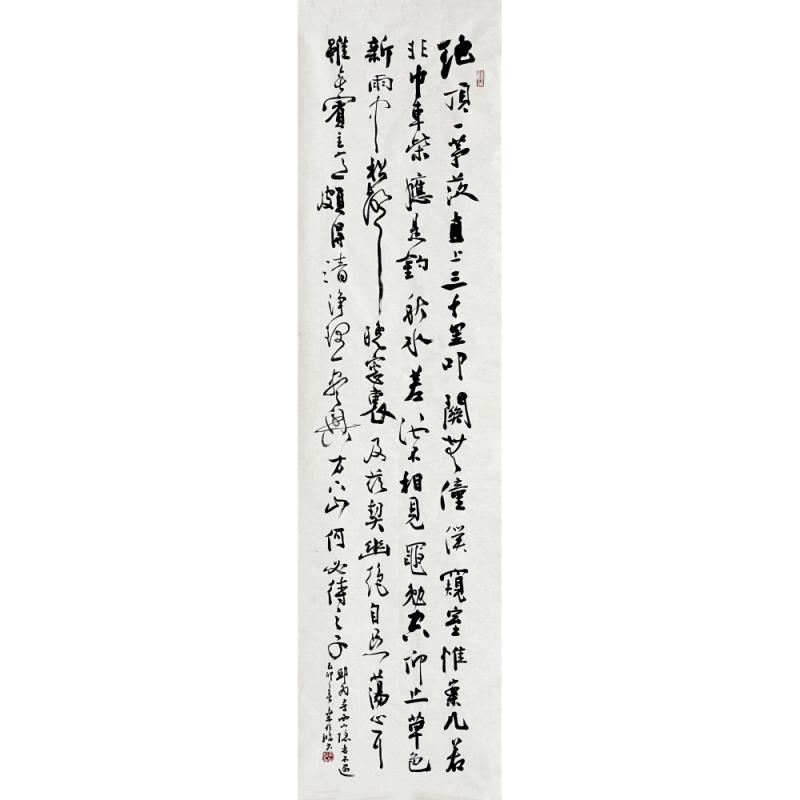 絶頂一茅茨直上三十里叩關無僮僕窺室惟案几若
非巾車柴應是釣秋水差池不相見黽勉空仰止草色
新雨中松聲晚窓裏及茲契幽絶自足蕩心耳
雖無賓主意頗得清淨理一興方下山何必待之子
邱為尋西山隱者不遇